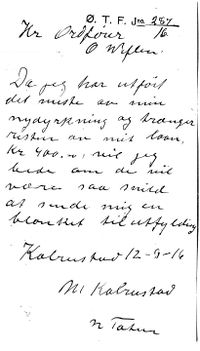 Ø. T. F. Jno 284/16
Hr Ordfører
O Wiflen.
Da jeg har utført
det meste av min
nydyrkning og trænger
resten av mit laan,
Kr 400.00, vil jeg
bede om de vil
være saa snild
at sende mig en
blanket til utfylding
Kolrustad 12-9-16
M Kolrustad